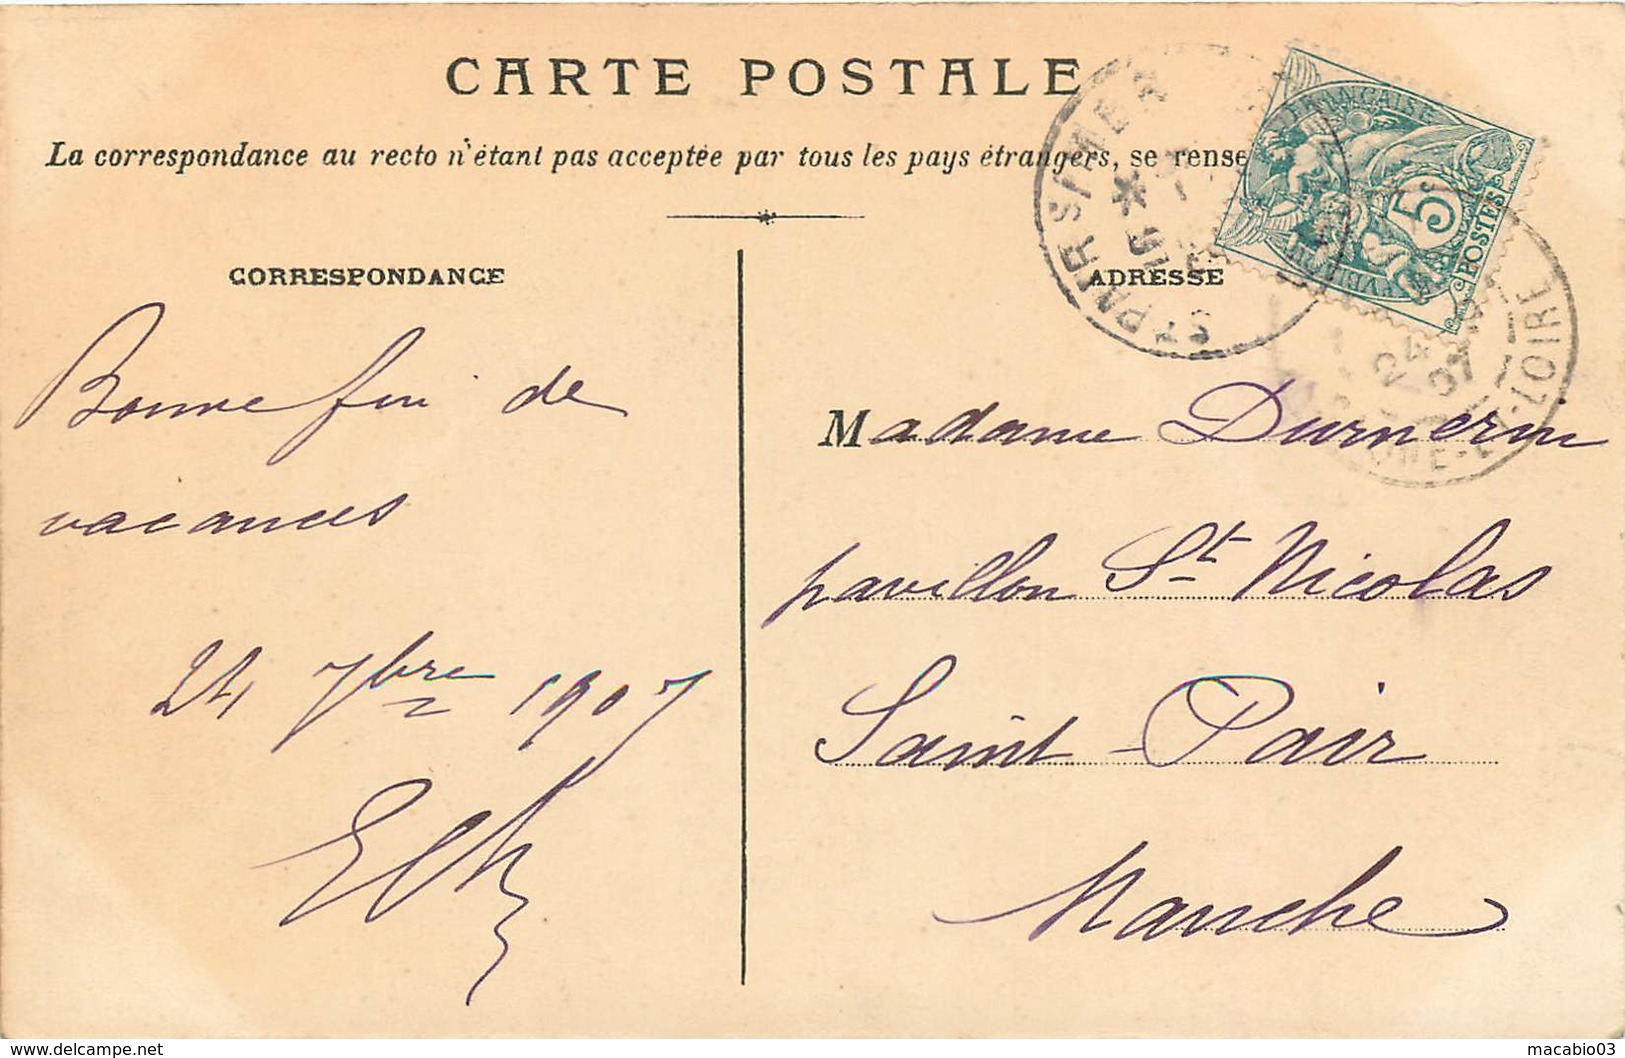 CARTE POSTALE
La correspondance au recto n'étant pas acceptée par tous les pays étrangers, se rense
CORRESPONDANCE
Bonne fin de
vacances
24 7bre 1907
ADRESSE
Madame Durnerin
pavillon St Nicolas
Saint-Pair
Manche
ST PAIR S/MER
FRANÇAISE
5c
POSTES
24
07
ET-LOIRE
www.delcampe.net
macabio03